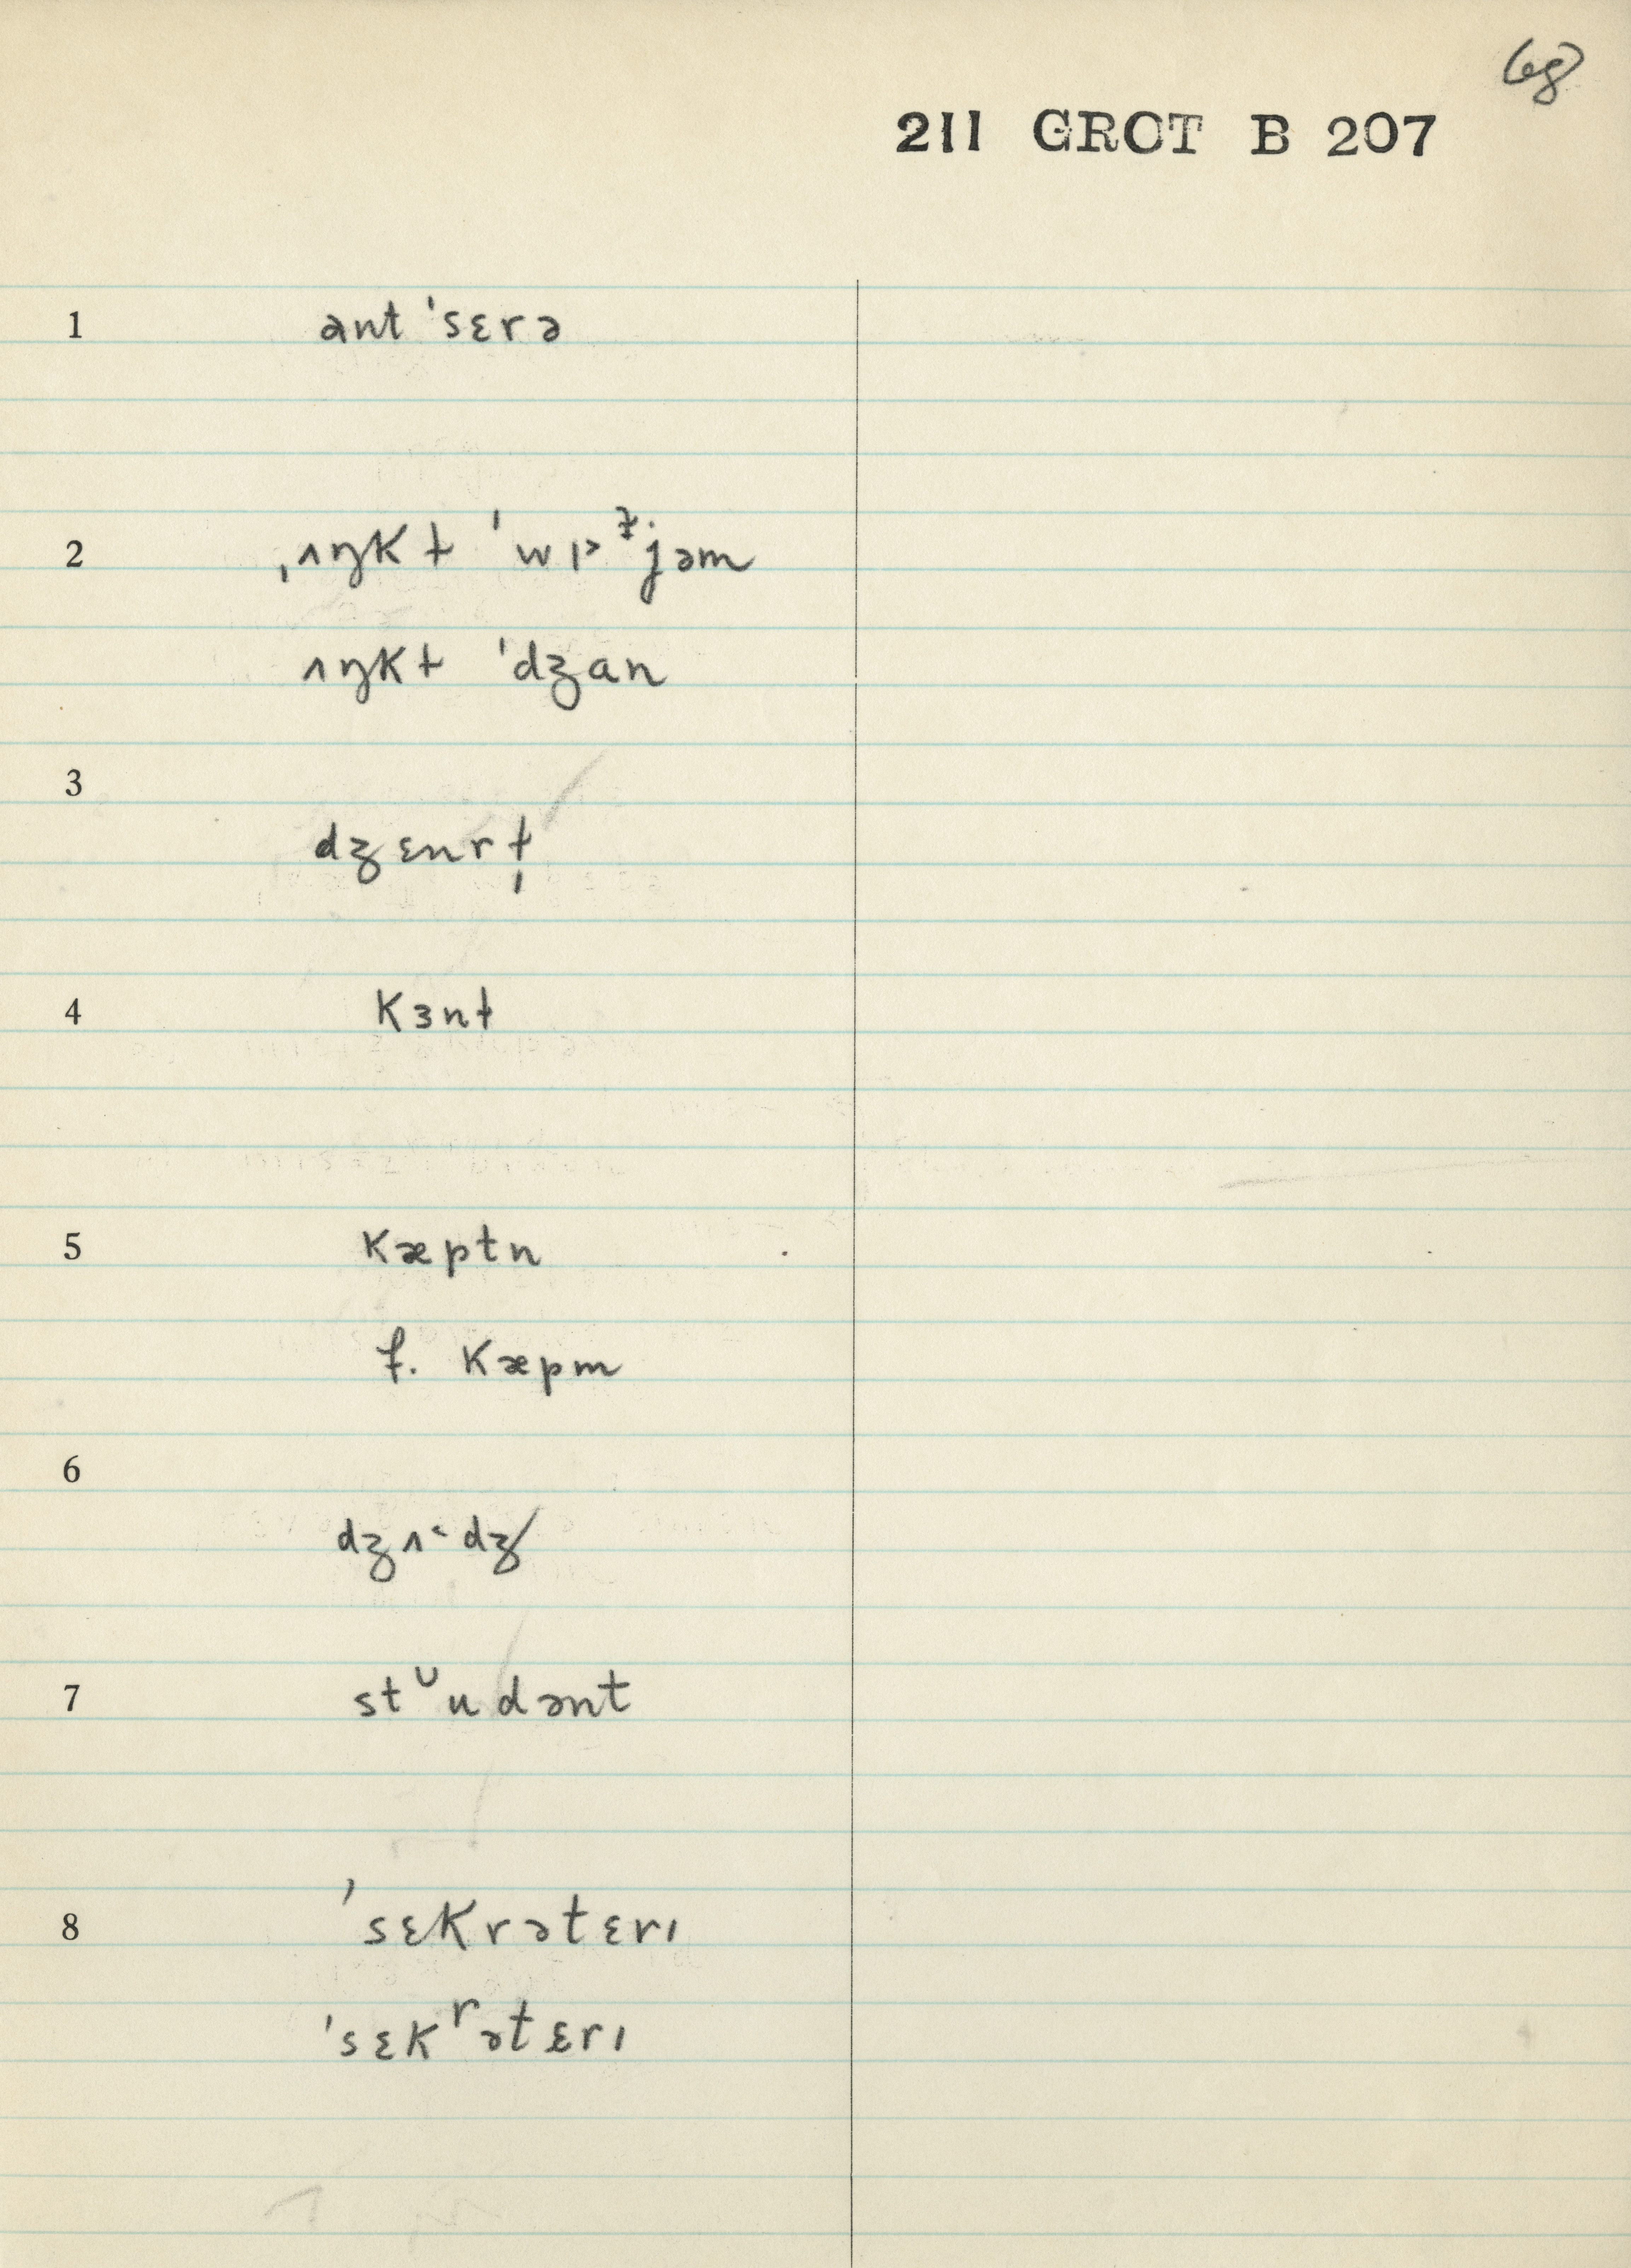 68
211 GROT B 207
1 ənt ˈsɛrə
2 ˌʌŋkɫ ˈwɪ˃ᵙjəm
ʌŋkɫ ˈdʒan
3 dʒɛnrɫ̩
4 kɜnɫ
5 kæptn
f. kæpm
6 dʒʌˑdʒ
7 stᶷudənt
8 ˈsɛkrətɛrɪ
ˈsɛkʳətɛrɪ